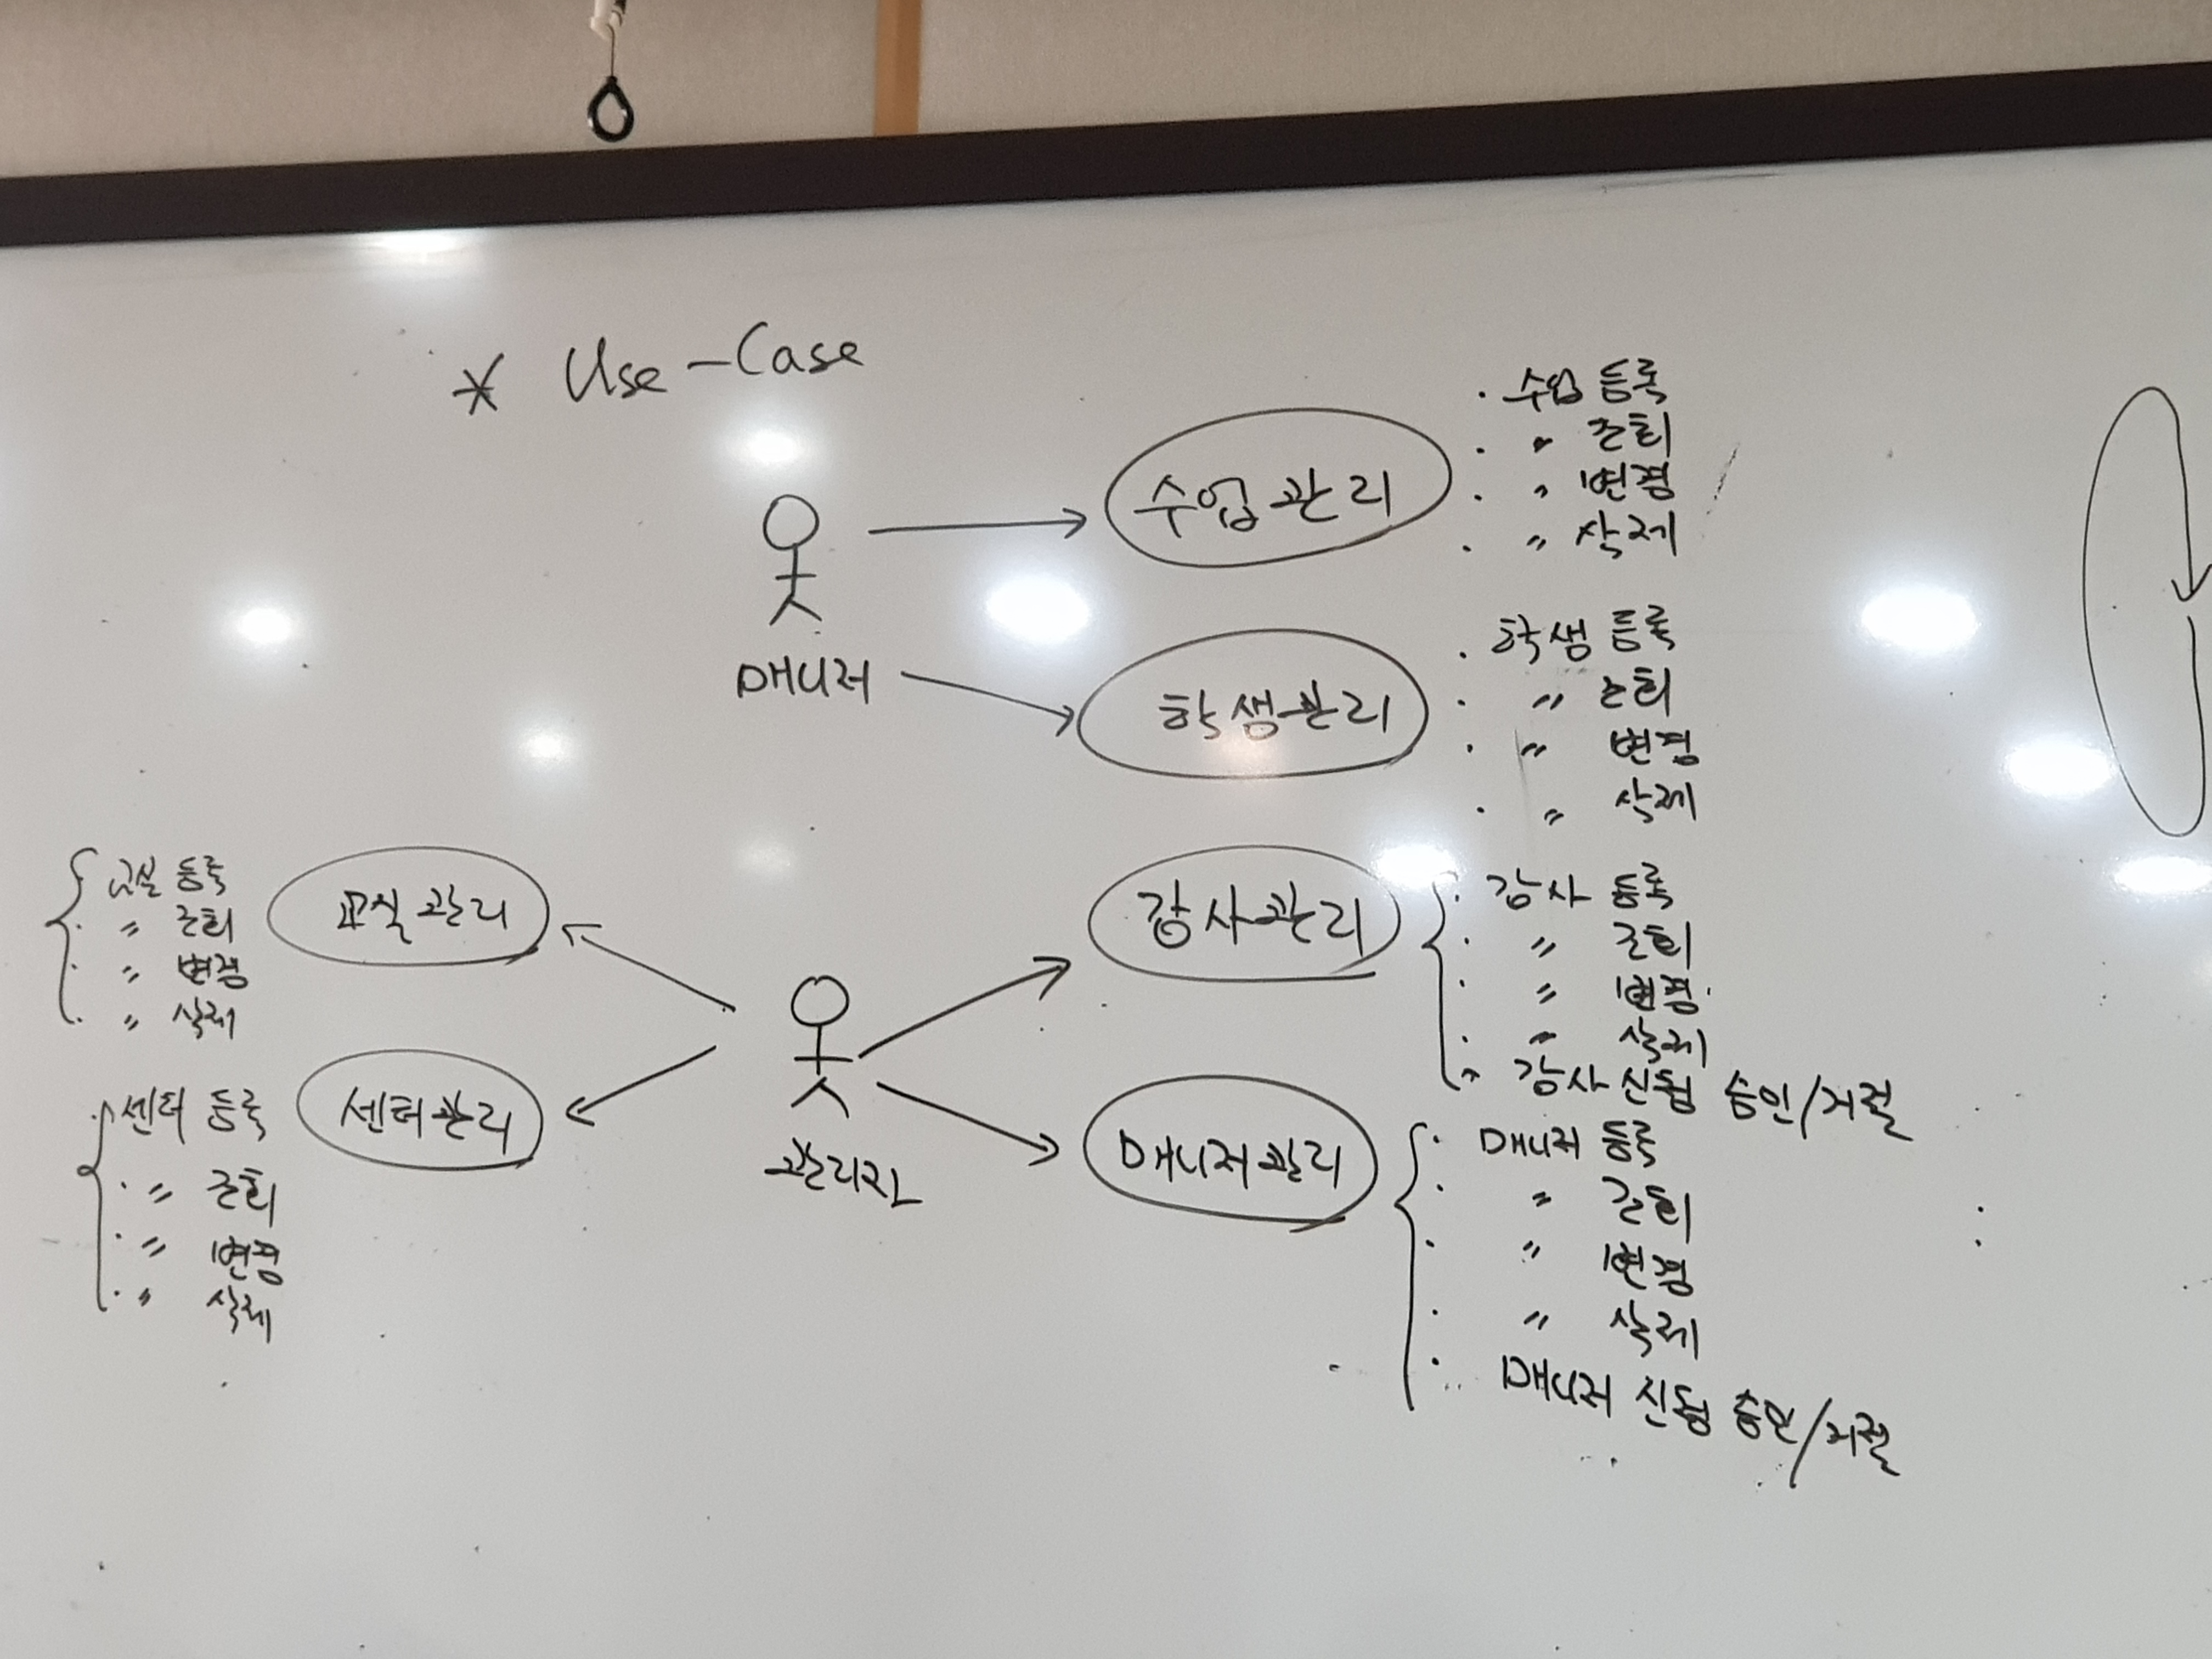 * Use-Case
매니저
수업관리
· 수업 등록
· 〃 조회
· 〃 변경
· 〃 삭제
학생관리
· 학생 등록
· 〃 조회
· 〃 변경
· 〃 삭제
관리자
교실관리
교실 등록
· 〃 조회
· 〃 변경
· 〃 삭제
센터관리
· 센터 등록
· 〃 조회
· 〃 변경
· 〃 삭제
강사관리
· 강사 등록
· 〃 조회
· 〃 변경
· 〃 삭제
· 강사 신청 승인/거절
매니저관리
· 매니저 등록
· 〃 조회
· 〃 변경
· 〃 삭제
· 매니저 신청 승인/거절